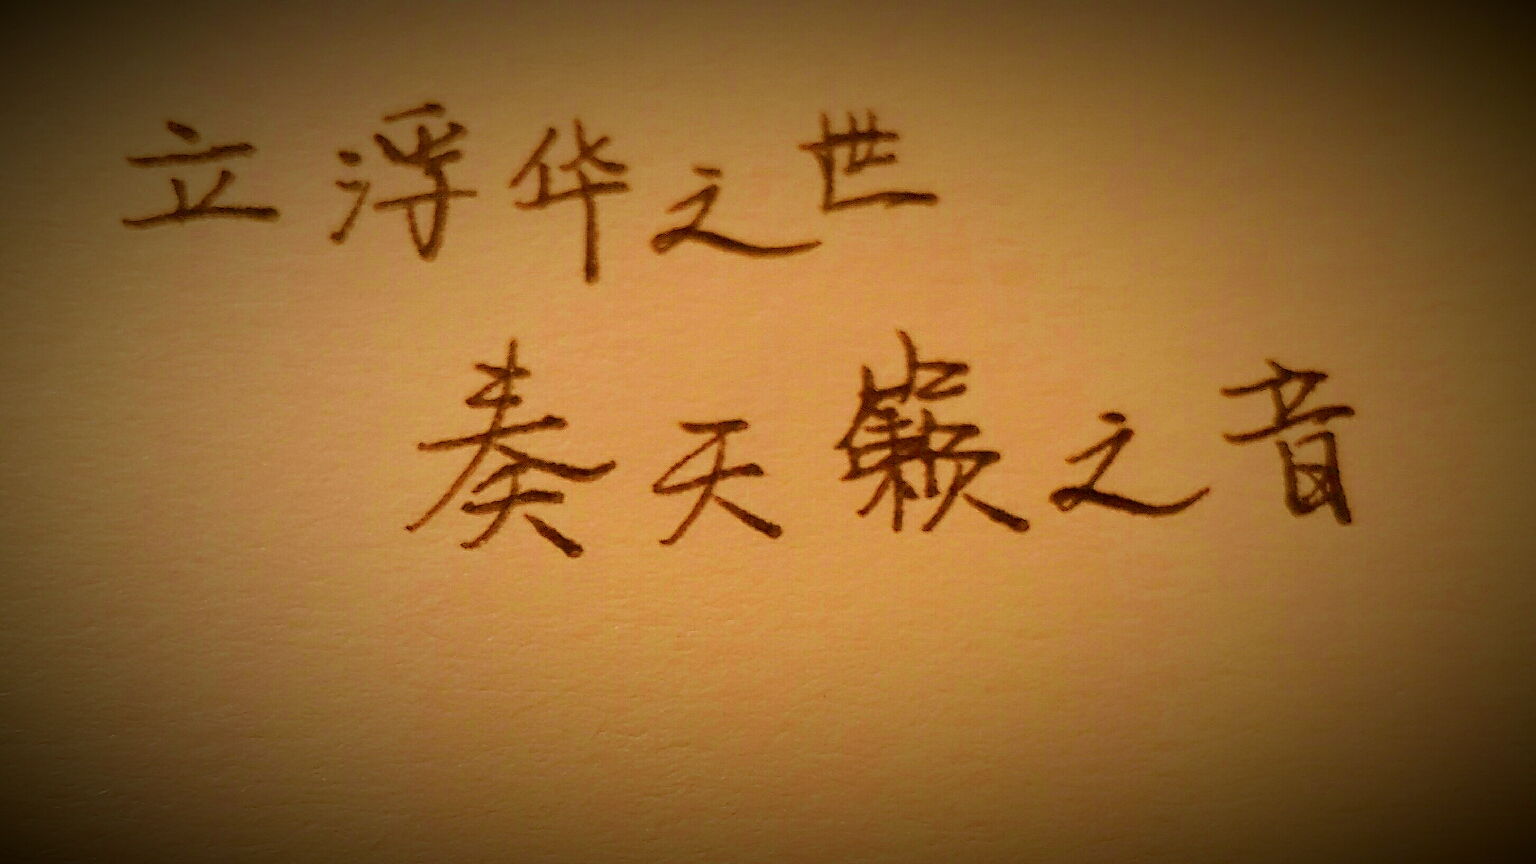 立浮华之世
奏天籁之音